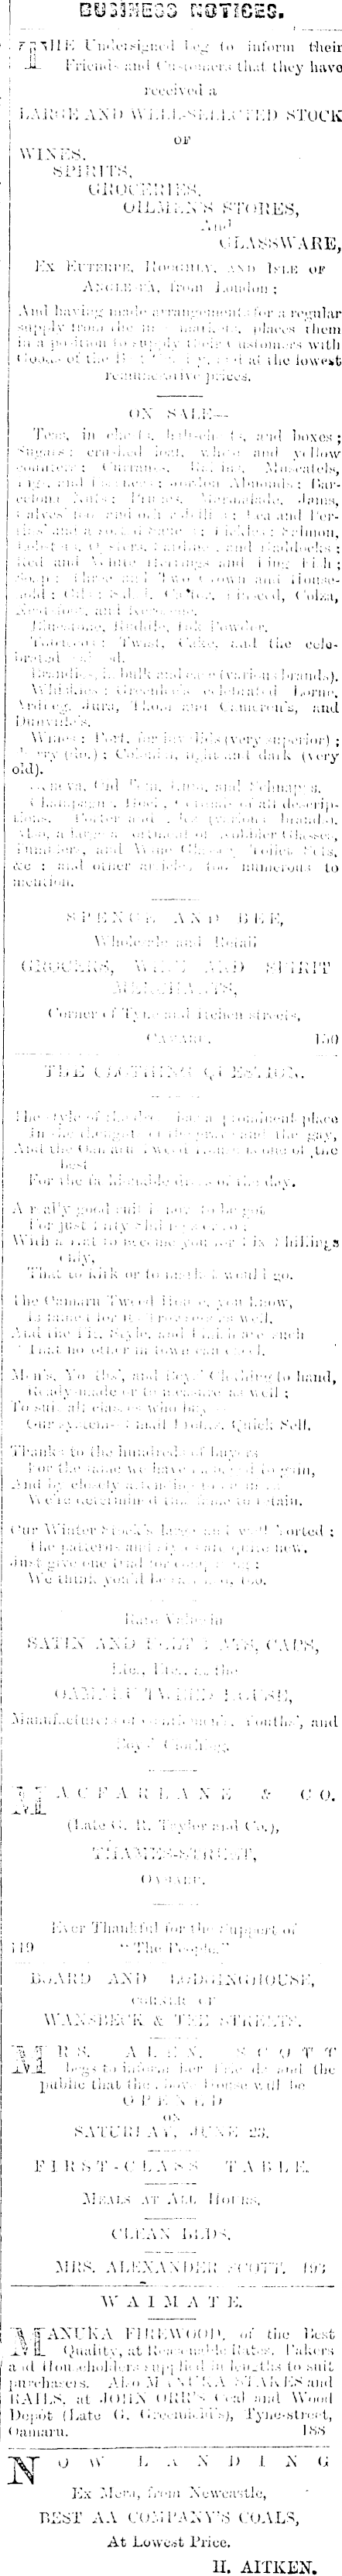 BUSINESS NOTICES.
THE Undersigned beg to inform their
Friends and Customers that they have
received a
LARGE AND WELL-SELECTED STOCK
OF
WINES,
SPIRITS,
GROCERIES,
OILMEN'S STORES,
And
GLASSWARE,
EX EUTERPE, HOOGHLY, AND ISLE OF
ANGLESEA, from London;
And having made arrangements for a regular
supply from the markets, places them
in a position to supply their Customers with
Goods of the Best and at the lowest
remunerative prices.
ON SALE—
Teas, in chests, half-chests, and boxes;
Sugars: crushed loaf, white and yellow
counters; Currants, Muscatels,
Figs, and Jordan Almonds; Bar-
celona Nuts; Prunes, Marmalade, Jams,
Calves' Lea and Per-
rins' Pickles; Salmon,
Lobsters, Oysters, Sardines, and Haddocks;
Red and White Herrings and Ling Fish;
Soap: Three and Two Crown and House-
hold; Oils: Castor, Linseed, Colza,
and Kerosene.
Bluestone, Ink Powder.
Tobaccos: Twist, Cake, and the cele-
brated
Brandies, in bulk and case (various brands).
Whiskies: Greenlees' celebrated Lorne,
Ardbeg, Jura, Thom and Cameron's, and
Dunville's.
Wines: Port, for invalids (very superior);
Sherry (do.); Colonial, light and dark (very
old).
Geneva, Old Tom, Rum, and Schnapps.
Champagne, Hock, of all descrip-
tions. Porter and Ales (various brands).
Also, a large assortment of Cobbler Glasses,
Tumblers, and Wine Glasses, Toilet Sets,
&c.; and other articles too numerous to
mention.
SPENCE AND BEE,
Wholesale and Retail
GROCERS, WINE AND SPIRIT
MERCHANTS,
Corner of Tyne and Itchen streets,
OAMARU. 150
THE CLOTHING QUESTION.
The style of the has a prominent place
In the thought of the grave and the gay,
And the Oamaru Tweed House is one of the
best
For the fashionable dress of the day.
A really good suit is now to be got
For just fifty shillings or so;
With a hat to become you for six shillings
only,
That to kirk or to market would go.
The Oamaru Tweed House, you know,
Is famed for its Trousers as well,
And the Fit, Style, and Finish are such
That no other in town can excel.
Men's, Youths', and Boys' Clothing to hand,
Ready-made or to measure as well;
To suit all classes who buy
Our system—Small Profits, Quick Sell.
Thanks to the hundreds of buyers
For the name we have to gain,
And by closely attending
We're determined the same to retain.
Our Winter Stock's large and well sorted;
The patterns and styles are quite new.
Just give one trial for
We think you'll be so, too.
Rare Value in
SATIN AND FELT HATS, CAPS,
Etc., Etc., at the
OAMARU TWEED HOUSE,
Manufacturers of Gentlemen's, Youths', and
Boys' Clothing.
MACFARLANE & CO.
(Late G. R. Taylor and Co.),
THAMES-STREET,
OAMARU.
Ever Thankful for the Support of
119 "The People."
BOARD AND LODGINGHOUSE,
CORNER OF
WANSBECK & TEES STREETS.
MRS. ALEX. SCOTT
begs to inform her friends and the
public that the above house will be
OPENED
ON
SATURDAY, JUNE 23.
FIRST-CLASS TABLE.
MEALS AT ALL HOURS.
CLEAN BEDS.
MRS. ALEXANDER SCOTT. 193
WAIMATE.
MANUKA FIREWOOD, of the Best
Quality, at Reasonable Rates. Bakers
and Householders supplied in lengths to suit
purchasers. Also MANUKA STAKES and
RAILS, at JOHN ORR'S Coal and Wood
Depôt (Late G. Greenfield's), Tyne-street,
Oamaru. 188
NOW LANDING
Ex Mera, from Newcastle,
BEST AA COMPANY'S COALS,
At Lowest Price.
H. AITKEN.